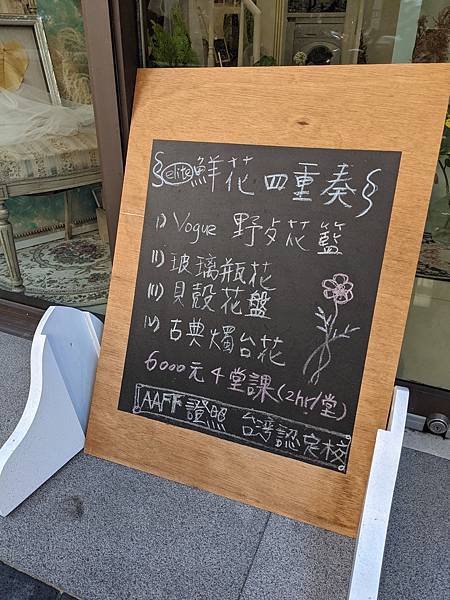 elite 鮮花 四重奏
I) Vogue 野夕花籃
II) 玻璃瓶花
III) 貝殼花盤
IV) 古典燭台花
6000元 4堂課(2hr/堂)
AAFF 證照 台灣認定校